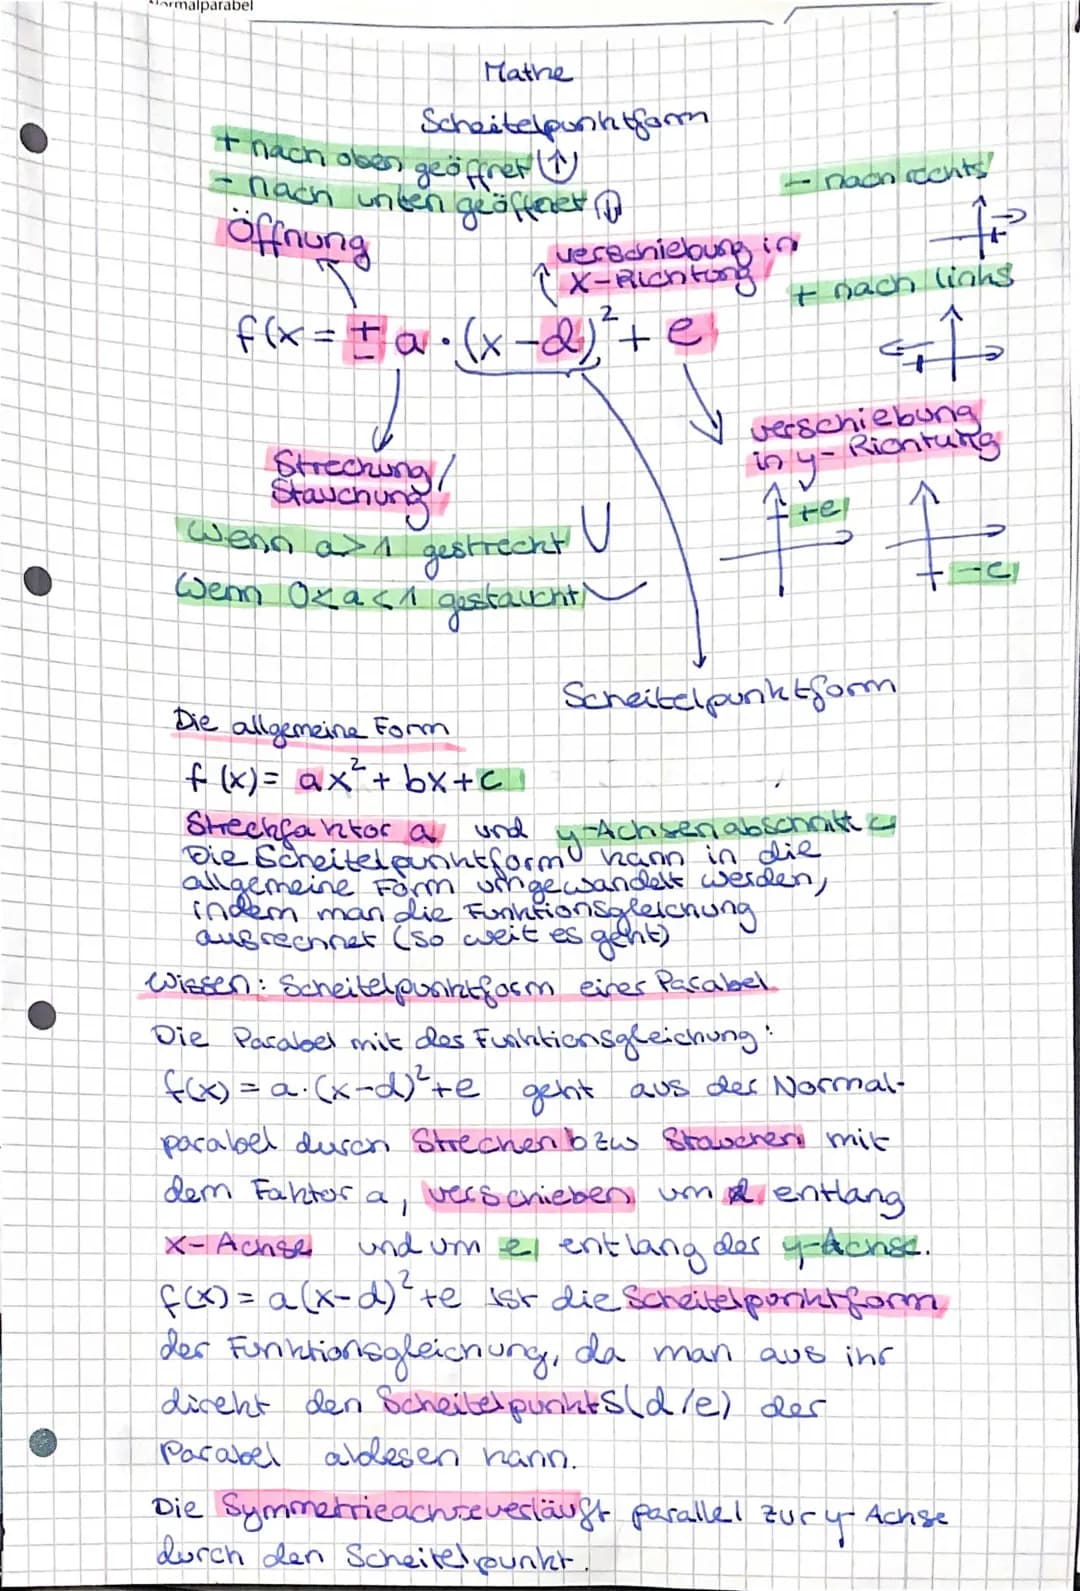 Normalparabel
Mathe
Scheitelpunktform
+ nach oben geöffnet
- nach unten geöffnet
Öffnung
- nach rechts
+
verschiebung in
x-Richtung
+ nach links
+
f(x = ± a · (x - d)² + e
verschiebung
in y-Richtung
Streckung/
Stauchung
+e
-e
Wenn a>1 gestreckt
Wenn 0<a<1 gestaucht
Scheitelpunktform
Die allgemeine Form
f (x) = ax² + bx + c
Streckfaktor a und y-Achsenabschnitt c
Die Scheitelpunktform kann in die
allgemeine Form umgewandelt werden,
indem man die Funktionsgleichung
ausrechnet (so weit es geht)
Wissen: Scheitelpunktform einer Parabel
Die Parabel mit der Funktionsgleichung:
f(x) = a·(x-d)²+e geht aus der Normal-
parabel durch Strecken bzw Stauchen mit
dem Faktor a, verschieben um d entlang
x-Achse und um e entlang der y-Achse.
f(x) = a(x-d)²+e ist die Scheitelpunktform
der Funktionsgleichung, da man aus ihr
direkt den Scheitelpunkt S(d/e) der
Parabel ablesen kann.
Die Symmetrieachse verläuft parallel zur y-Achse
durch den Scheitelpunkt.